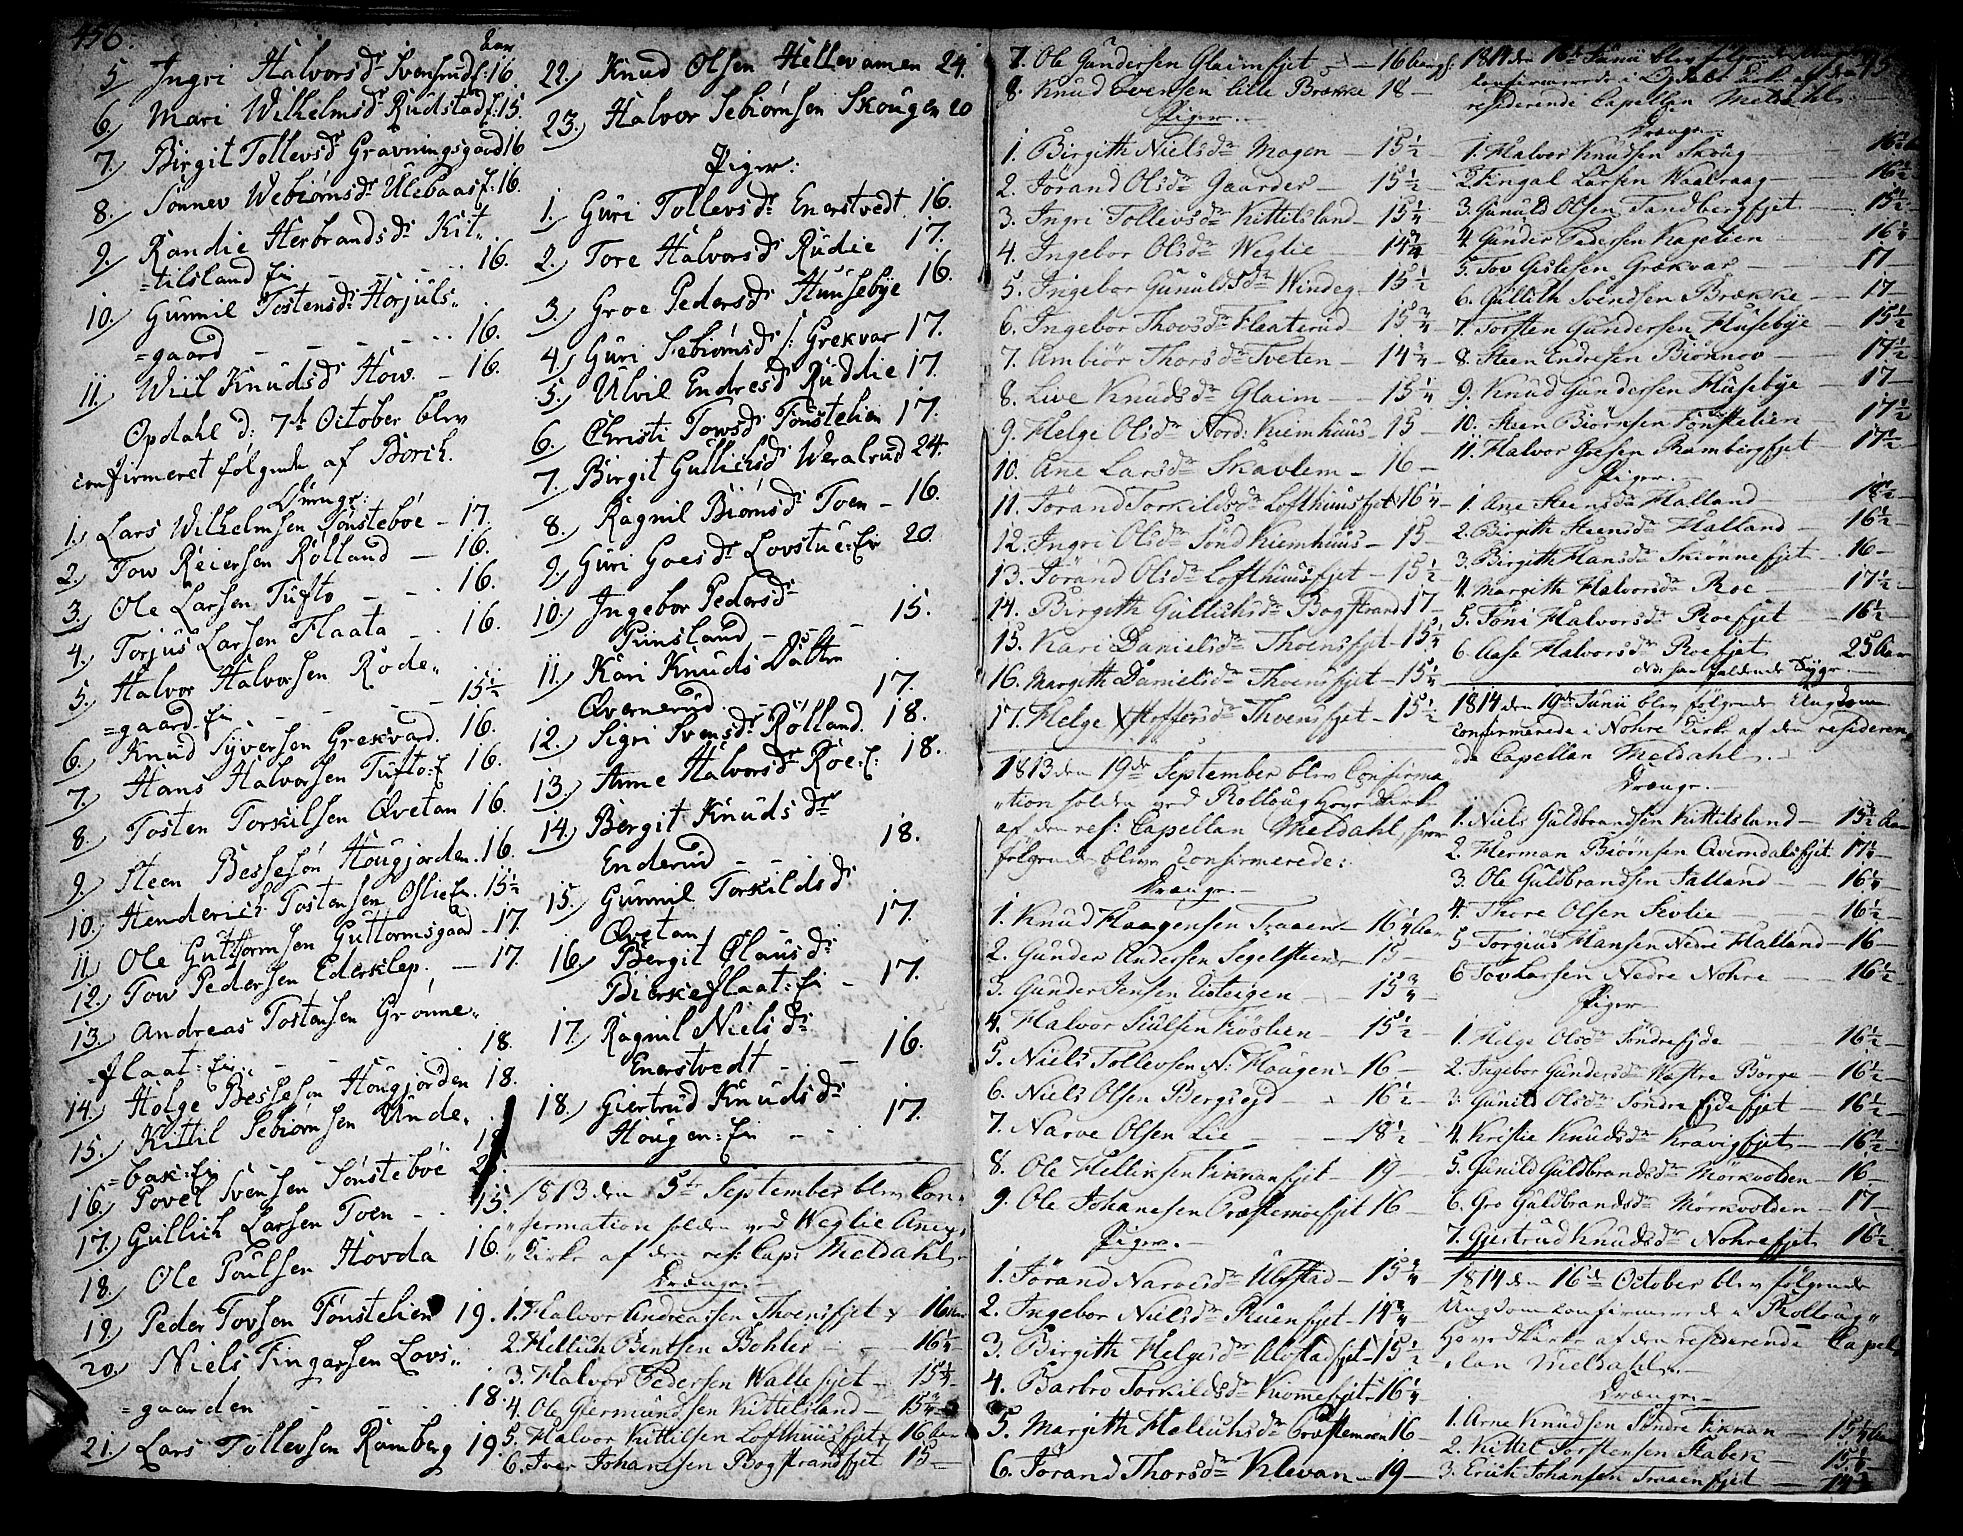 456.
Aar
5 Ingri Halvorsdr Svensrud f: 16
6. Mari Wilhelmsdr Rudstad f: 15.
7. Birgit Tollevsdr Gravningsgaard 16
8. Sønnev Webiørnsdr Ulebaas f: 16.
9. Randie Herbrandsdr Kit-
=tilsland Ei - - - - 16.
10. Gunnil Tostensdr Horjuls-
=gaard - - - - 16.
11. Wiil Knudsdr How. - 16.
Opdahl d: 7de October blev
confirmeret følgende af Borch.
Drenge:
1. Lars Wilhelmsen Tønsteboe - 17.
2. Tow Reiersen Rolland - 16.
3. Ole Larsen Tufto - - 16.
4. Torjus Larsen Flaata - 16.
5. Halvor Halvorsen Rode-
=gaard Ei - - - 15½
6. Knud Syversen Grekvard. 16.
7. Hans Halvorsen Tufto: E 16.
8. Tosten Torkilsen Qvetan 16.
9. Steen Bessesøn Hougjorden. 16.
10. Henderich Tostensen Oslie Ei. 15½
11. Ole Guttormsen Guttormsgaard - 17.
12. Tow Pedersen Ederklep. - 17.
13. Andreas Tostensen Grønne-
=flaat: Ei - - 18.
14. Holge Bessesøn Hougjorden 18.
15. Kittil Sebiørnsen Unde-
=bak: Ei
16. Povel Svensen Tønsteboe
17. Gullich Larsen Toen - - 15.
18. Ole Poulsen Hovda 16.
19. Peder Tovsen Fønstelien 19.
20. Niels Fingarsen Lovs-
=gaarden - - - 18.
21. Lars Tollevsen Ramberg 19.
22. Knud Olsen Hellevamen 24.
23. Halvor Sebiørnsen Skougen 20
Piger:
1. Guri Tollevsdr Enerstvedt 16.
2. Tore Halvorsdr Rudie 17.
3. Groe Pedersdr Huusebye 16.
4. Guri Sebiørnsdr /: Grekvar 17.
5. Ulvil Endresd Ruddie 17.
6. Christi Towsdr Fønstelien 17.
7. Birgit Gullichsdr Weralrud 24.
8. Ragnil Biørnsdr Toen - 16.
9. Guri Goesdr Lovstue: Ei 20
10. Ingebor Pedersdr
Punsland - - - 15.
11. Kari Knuds Datter
Qvernerud - - 17.
12. Sigri Svensdr Rolland. 18.
13. Anne Halvorsdr Roe: E: 18.
14. Bergit Knudsdr
Enderud 18.
15. Gunnil Torkildsdr
Qvetan 17.
16. Bergit Clausdr
Bierkeflaat: Ei - 17.
17. Ragnil Nielsdr
Enerstvedt - - - 16.
18. Giertrud Knudsdr
Hougen: Ei - - 17.
1813 den 5te September blev Con-
"fermation holden ved Weglie Anex-
"Kirke af den res: Cap: Meldahl.
Drenge.
1. Halvor Andreassen Thoensfjet 16 aar
2. Hellich Bentsen Bohler - - 16¼
3. Halvor Pedersen Wallefjet - 15¼
4. Ole Giermundsen Kittilsland - 15¾
5. Halvor Kittilsen Lofthuusfjet 16 aar
6. Iver Johannesen Bogstrandfjet 15 -
7. Ole Gundersen Glaimfjet - 16
8. Knud Evensen lille Brække 18 -
Piger.
1. Birgith Nielsdr Mogen - 15½
2. Jørand Olsdr Gaarder - 15½
3. Ingri Tollevsdr Kittilsland - 15¼
4. Ingebor Olsdr Weglie - 14¾
5. Ingebor Gunuldsdr Windeg - 15½
6. Ingebor Thovsdr Flaaterud - 15¾
7. Ambiør Thorsdr Tveten - 14¾
8. Live Knudsdr Glaim - 15¼
9. Helge Olsdr Nord: Kiemhuus - 15 -
10. Ane Larsdr Skavlem - 16 -
11. Jørand Torkildsdr Lofthuusfjet 16¼
12. Ingri Olsdr Sønd Kiemhuus - 15 -
13. Jørand Olsdr Lofthuusfjet - 15½
14. Birgith Gullichsdr Bogstrand 17 -
15. Kari Danielsdr Thoensfjet - 15¼
16. Margith Danielsdr Thoensfjet - 15¼
17. Helge Hoffersdr Thoensfjet - 15½
1813 den 19de September blev Confirma
"tion holden ved Rolloug Hovedkirke
af den res: Capellan Meldahl, hvor
følgende bleve confirmerede:
Drenge.
1. Knud Haagensen Traaen - 16¼ aar
2. Gunder Andersen Segelsteen - 15 -
3. Gunder Jensen Listeigen - 15¾
4. Halvor Siulsen Fiøslien - 15½
5. Niels Tollevsen N: Hougen - 16 -
6. Niels Olsen Bergsejd - 16½
7. Narve Olsen Lie - - 18½
8. Ole Hellichsen Finnanfjet - 19 -
9. Ole Johanesen Præstemoefjet 16 -
Piger.
1. Jørand Narvesdr Ulfstad - 15¾
2. Ingebor Nielsdr Ruenfjet - 14¾
3. Birgith Helgesdr Ulvstadfjet - 15½
4. Barbro Torkildsdr Kiomefjet 16¼
5. Margith Hellichsdr Præstemoen 16 -
6. Jørand Thorsdr Klevan - 19 -
1814 den 16de Junii blev følgende Ungdom
confirmerede i Opdals Kirke af den
residerende Capellan Meldahl.
Drenge.
1. Halvor Knudsen Skoug - 16½
2. Fingal Larsen Waalraag - 16½
3. Gunuld Olsen Sandbergfjet - 15½
4. Gunder Pedersen Kagelien - 16¼
5. Tov Gislesen Grækvar - 17
6. Gullith Svendsen Brække - 17 -
7. Torsten Gundersen Husebye - 15½
8. Steen Endresen Biørknov - 17½
9. Knud Gundersen Husebye - 17 -
10. Steen Biørnsen Fønstelien - 17½
11. Halvor Goesen Rambergfjet - 17½
Piger.
1. Ane Steensdr Halland - 18½
2. Birgith Steensdr Halland - 16½
3. Birgith Hansdr Skiønnefjet - 16 -
4. Margith Halvorsdr Roe - 17½
5. Tøni Halvorsdr Roefjet - 16½
6. Aase Halvorsdr Roefjet 25 aar
1814 den 19de Junii blev følgende Ungdom
confirmerede i Nohre Kirke af den resideren
de Capellan Meldahl.
Drenge.
1. Niels Guldbrandsen Kittilsland - 15½ aar
2. Herman Biørnsen Qverndalsfjet 17¼
3. Ole Guldbrandsen Falland - 16¼
4. Thore Olsen Sevlie - 16½
5. Torgius Hansen Nedre Halland - 16 -
6. Tov Larsen Nedre Nohre - 16½
Piger
1. Helge Olsdr Søndre Ejde - 16½
2. Ingebor Gundersdr Wæstre Børge - 16½
3. Gunild Olsdr Søndre Ejdefjet - 16½
4. Kristie Knudsdr Kravigfjet - 16½
5. Gunild Guldbrandsdr Mørkvolden - 16 -
6. Gro Guldbrandsdr Mørkvolden - 17 -
7. Gjertrud Knudsdr Nohrefjet 16½
1814 den 16de October blev følgende
Ungdom confirmerede i Rolloug
Hovedkirke af den residerende Capel-
"lan Meldahl.
Drenge.
1. Arne Knudsen Søndre Finnan - 15¼ aar
2. Kittil Torstensen Stabek - 15¼
3. Erich Johansen Traaenfjet - 14